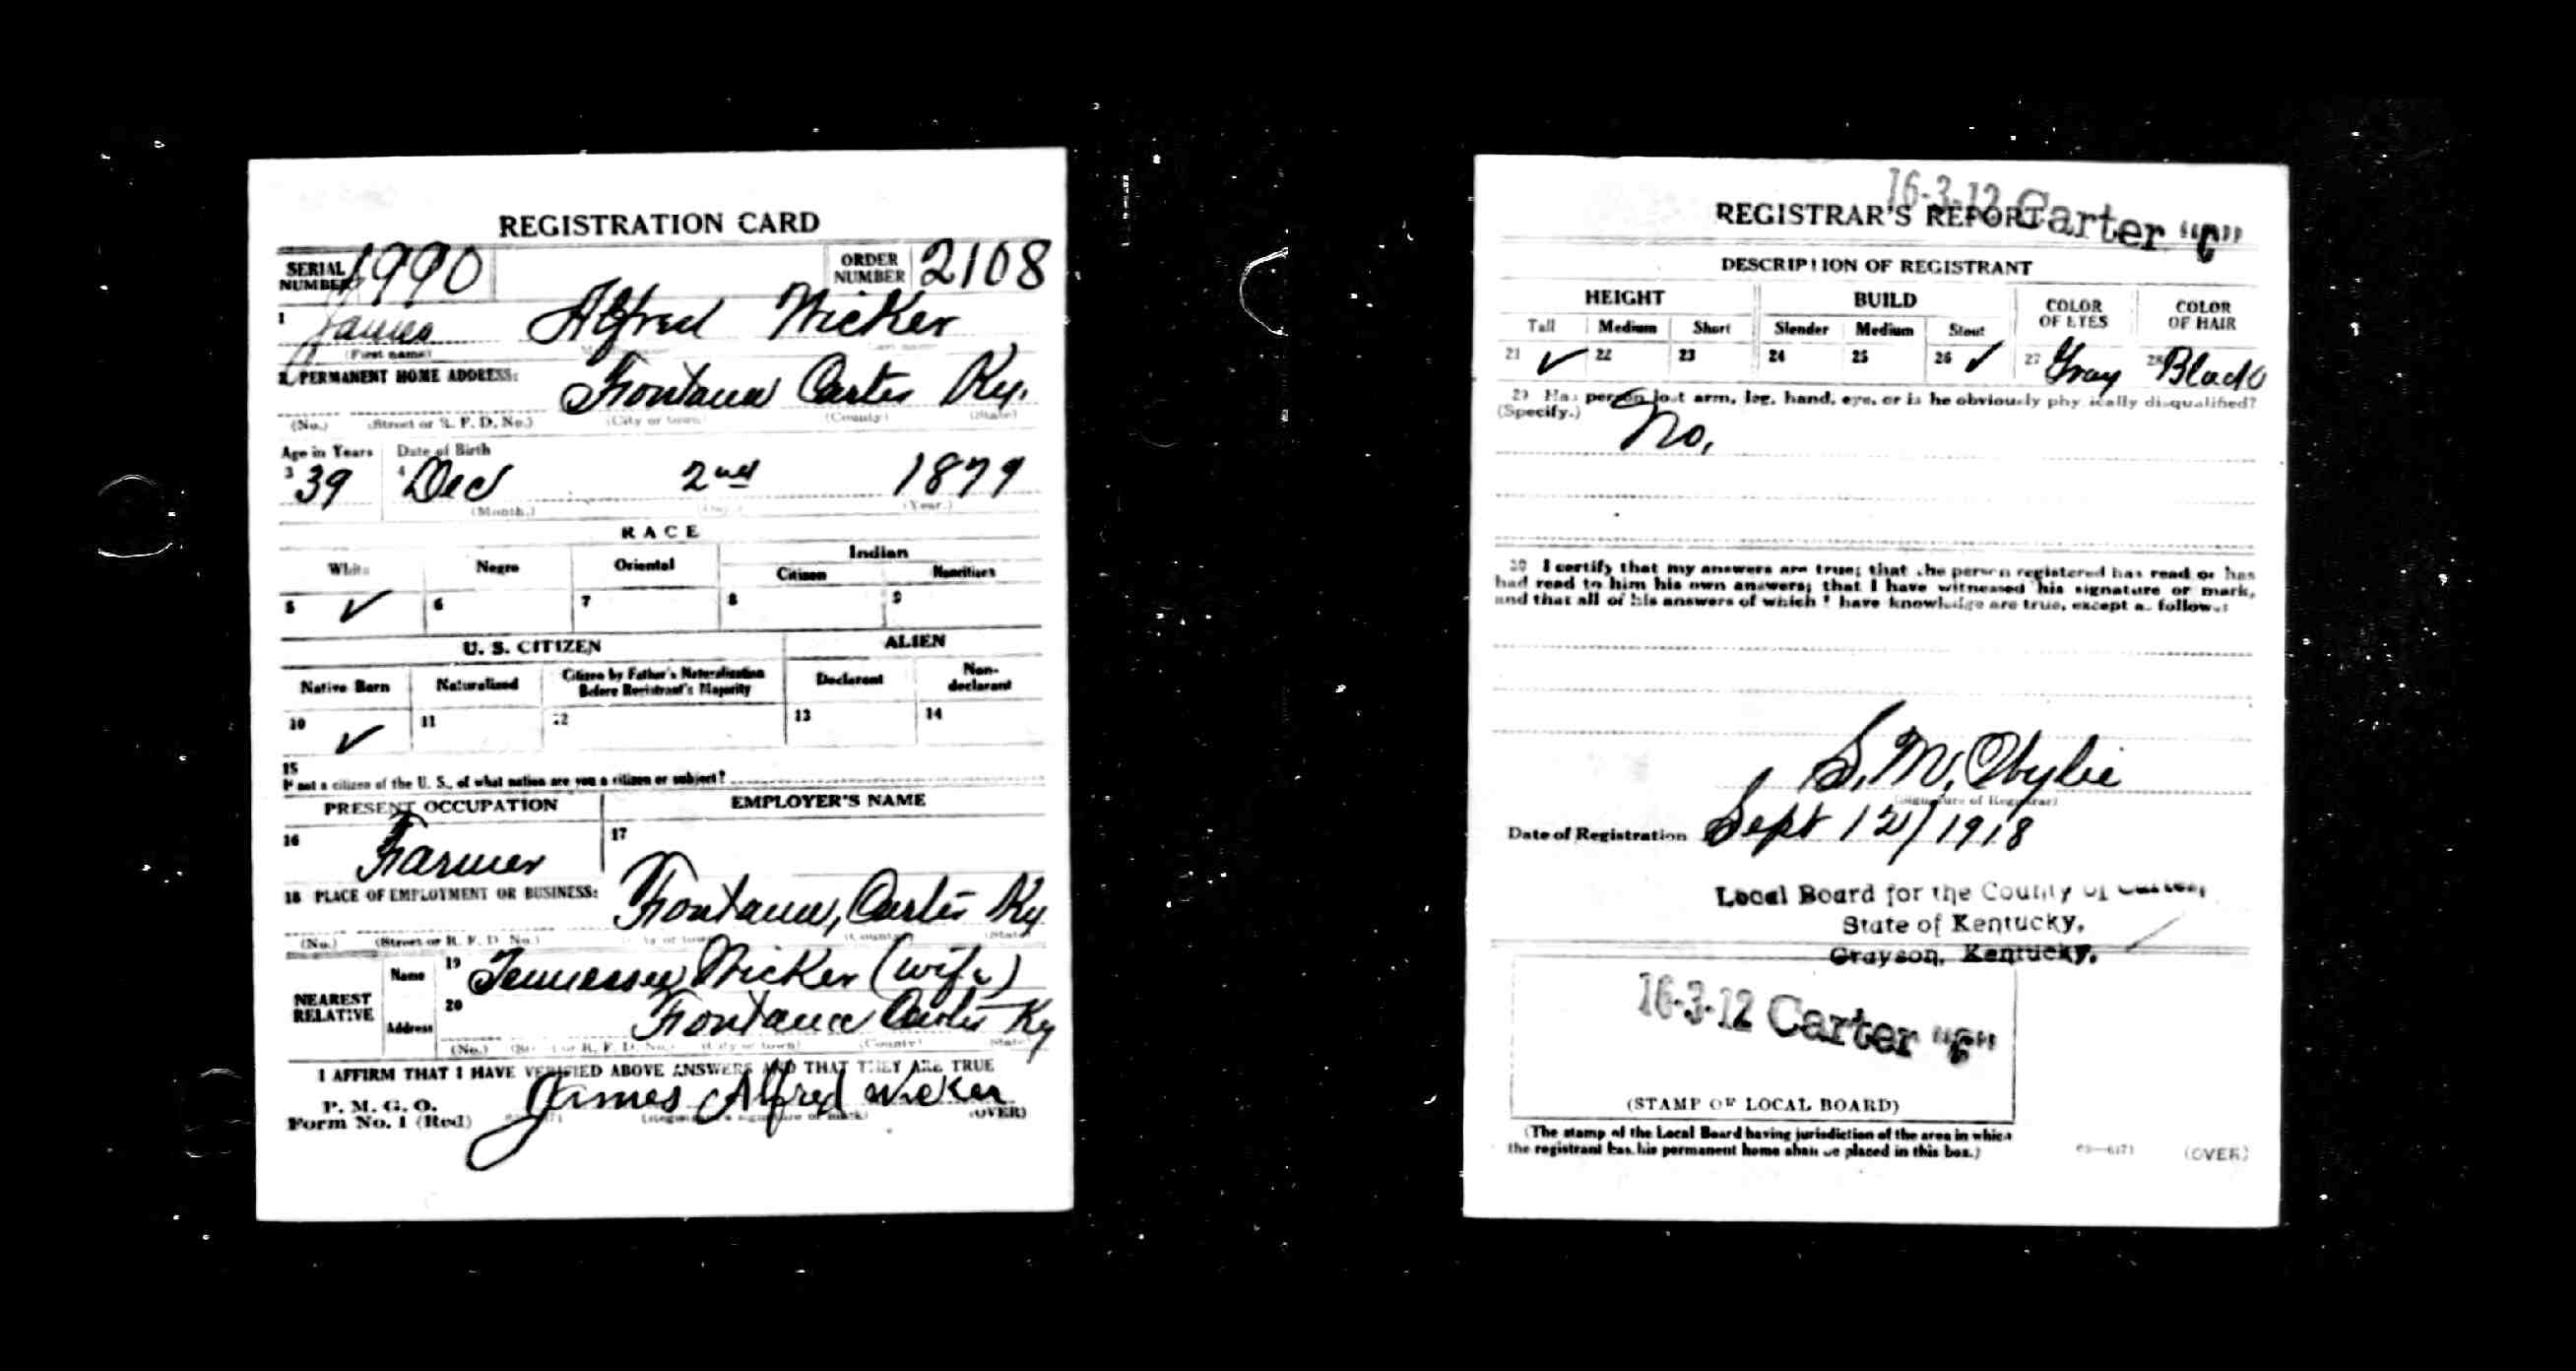 REGISTRATION CARD
SERIAL NUMBER 1990 ORDER NUMBER 2108
1 James Alfred Wicker
(First name)
2 PERMANENT HOME ADDRESS: Fontana Carter Ky.
(No.) (Street or R. F. D. No.) (City or town) (County) (State)
Age in Years Date of Birth
3 39 4 Dec 2nd 1879
(Month.) (Day.) (Year.)
RACE
White Negro Oriental Indian
Citizen Noncitizen
5 ✓ 6 7 8 9
U. S. CITIZEN ALIEN
Native Born Naturalized Citizen by Father's Naturalization Before Registrant's Majority Declarant Non-declarant
10 ✓ 11 12 13 14
15
If not a citizen of the U. S., of what nation are you a citizen or subject?
PRESENT OCCUPATION EMPLOYER'S NAME
16 Farmer 17
18 PLACE OF EMPLOYMENT OR BUSINESS: Fontana, Carter Ky
(No.) (Street or R. F. D. No.) (City or town) (County) (State)
NEAREST RELATIVE Name 19 Tennessee Wicker (wife)
Address 20 Fontana Carter Ky
(No.) (Street or R. F. D. No.) (City or town) (County) (State)
I AFFIRM THAT I HAVE VERIFIED ABOVE ANSWERS AND THAT THEY ARE TRUE
P. M. G. O.
Form No. 1 (Red) James Alfred Wicker
(Registrant's signature or mark) (OVER)
16-3-12 Carter "C"
REGISTRAR'S REPORT
DESCRIPTION OF REGISTRANT
HEIGHT BUILD COLOR OF EYES COLOR OF HAIR
Tall Medium Short Slender Medium Stout
21 ✓ 22 23 24 25 26 ✓ 27 Gray 28 Black
29 Has person lost arm, leg, hand, eye, or is he obviously physically disqualified?
(Specify.) No.
30 I certify that my answers are true; that the person registered has read or has
had read to him his own answers; that I have witnessed his signature or mark,
and that all of his answers of which I have knowledge are true, except as follows:
S. M.
(Signature of Registrar)
Date of Registration Sept 12/1918
Local Board for the County of Carter,
State of Kentucky,
Grayson, Kentucky.
16-3-12 Carter "C"
(STAMP OF LOCAL BOARD)
(The stamp of the Local Board having jurisdiction of the area in which
the registrant has his permanent home shall be placed in this box.)
03—6171 (OVER)